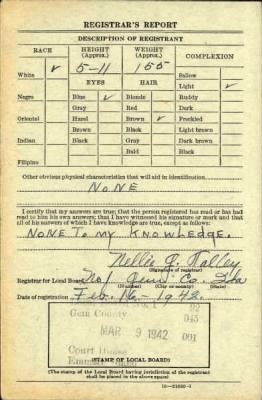 REGISTRAR'S REPORT
DESCRIPTION OF REGISTRANT
RACE HEIGHT (Approx.) WEIGHT (Approx.) COMPLEXION
White ✓ 5-11 155 Sallow
EYES HAIR Light ✓
Negro Blue ✓ Blonde Ruddy
Gray Red Dark
Oriental Hazel Brown ✓ Freckled
Brown Black Light brown
Indian Black Gray Dark brown
Bald Black
Filipino
Other obvious physical characteristics that will aid in identification
NONE
I certify that my answers are true; that the person registered has read or has had
read to him his own answers; that I have witnessed his signature or mark and that
all of his answers of which I have knowledge are true, except as follows:
NONE TO MY KNOWLEDGE.
Nellie J. Kalley
(Signature of registrar)
Registrar for Local Board No 1 Gem Co. Ida
(Number) (City or county) (State)
Date of registration Feb. 16-1942.
Gem County 045
MAR 9 1942 001
Court House
(STAMP OF LOCAL BOARD)
(The stamp of the Local Board having jurisdiction of the registrant
shall be placed in the above space.)